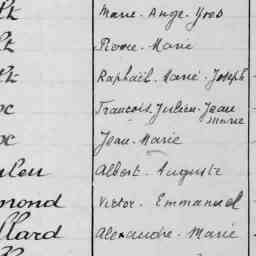 Marie-Ange-Yves
Pierre-Marie
Raphaël-Marié-Joseph
François-Julien-Jean
Marie
Jean-Marie
Albert-Auguste
mond Victor-Emmanuel
llard Alexandre-Marie